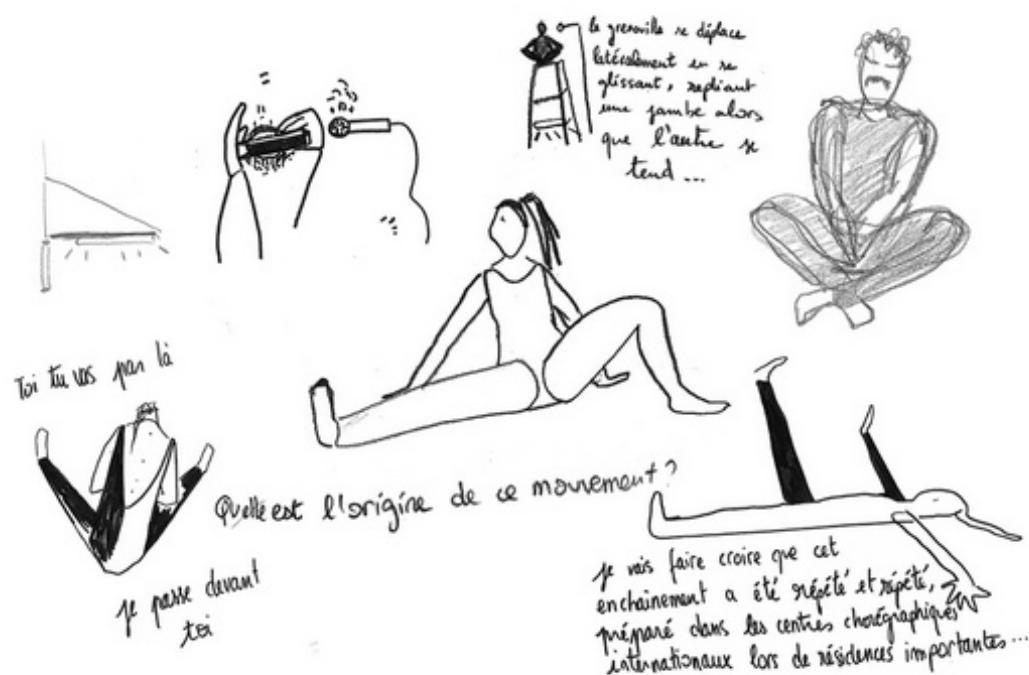 la grenouille se déplace
latéralement en se
glissant, repliant
une jambe alors
que l'autre se
tend...
Toi tu vas par là
je passe devant
toi
Quelle est l'origine de ce mouvement?
je vais faire croire que cet
enchaînement a été répété et répété,
préparé dans les centres chorégraphiques
internationaux lors de résidences importantes...